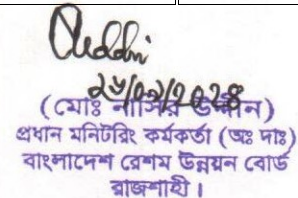 ২৮/০৭/২০২৪
(মোঃ নাসির উদ্দীন)
প্রধান মনিটরিং কর্মকর্তা (অঃ দাঃ)
বাংলাদেশ রেশম উন্নয়ন বোর্ড
রাজশাহী।